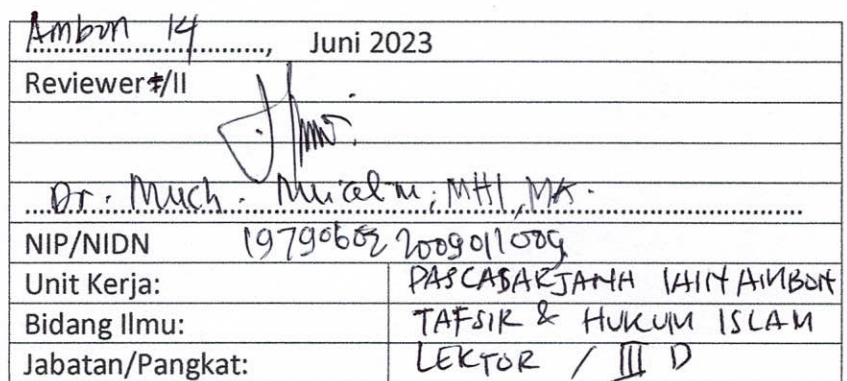 Ambon 14, Juni 2023
Reviewer I/II
Dr. Much. MHI, MA.
NIP/NIDN
Unit Kerja: PASCASARJANA IAIN AMBON
Bidang Ilmu: TAFSIR & HUKUM ISLAM
Jabatan/Pangkat: LEKTOR / III D